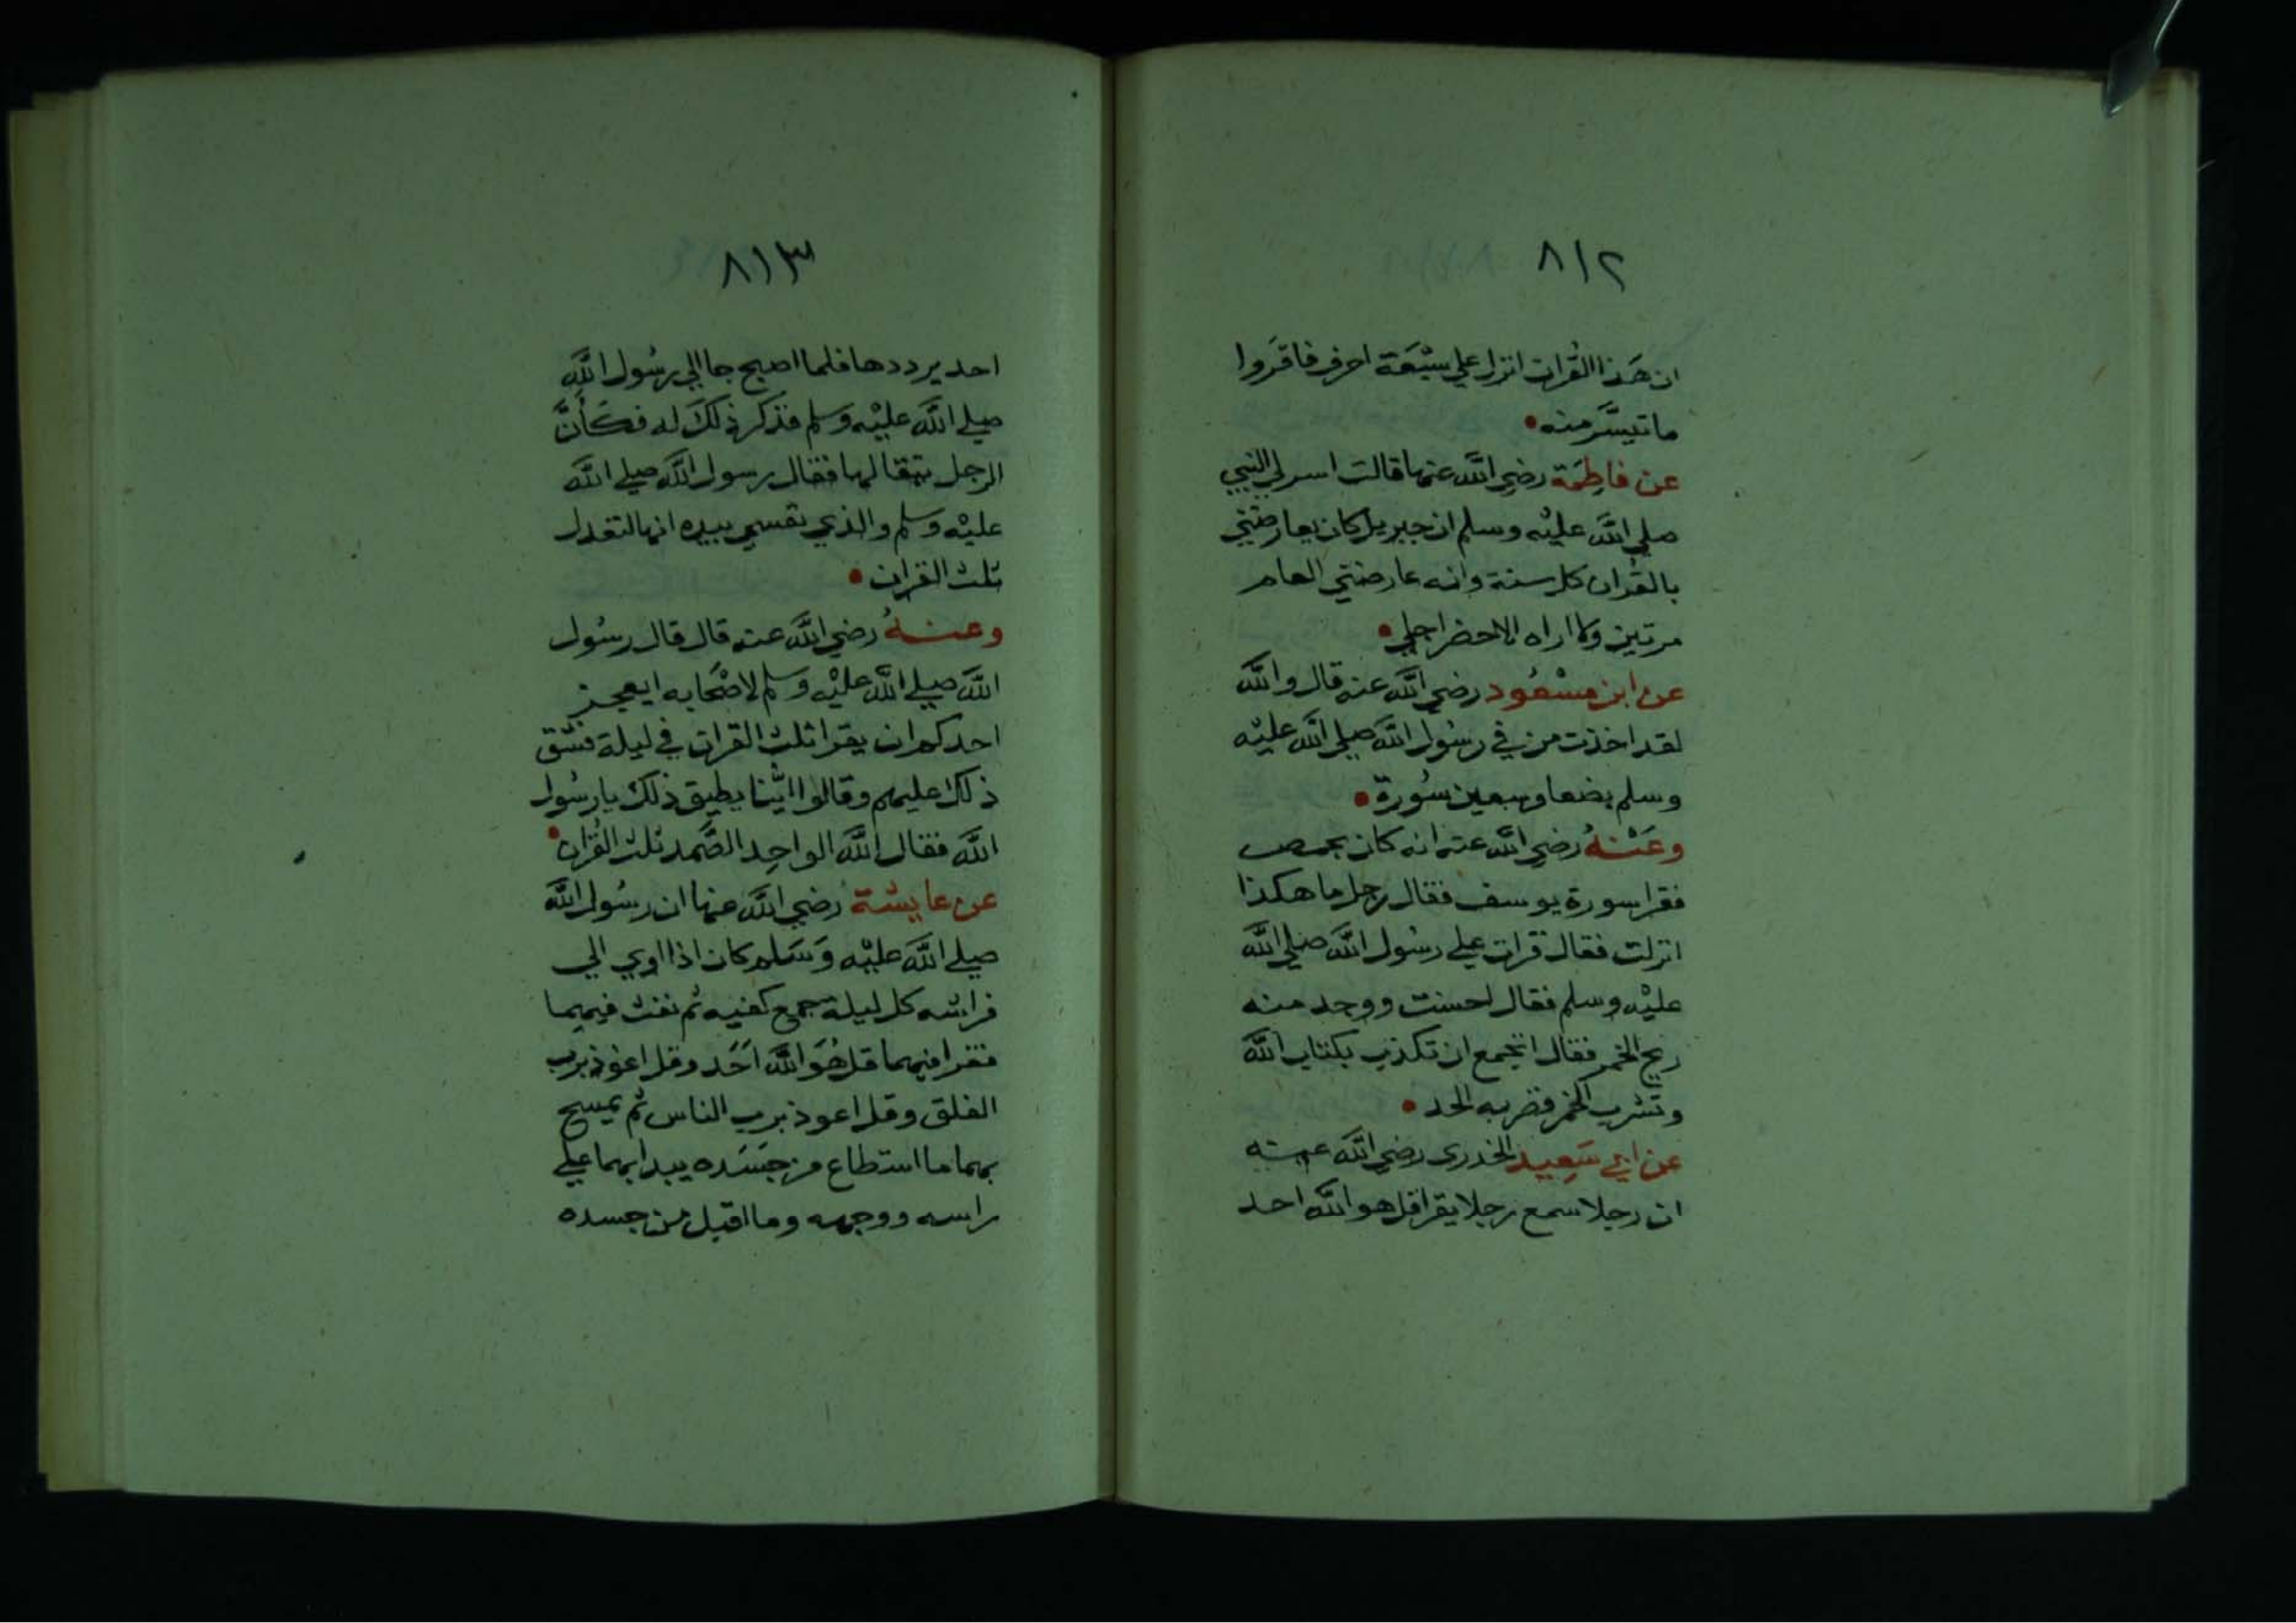 ٨١٢
ان هَذا القُران انزل علي سَبْعَة احرف فاقرَوا
ما تيسَّر منه
عن فاطِمَة رضي اللَّه عنها قالت اسر لي النبي
صلي اللَّه عليْه وسلم ان جبريل كان يعارضني
بالقُران كل سنة وانه عارضني العام
مرتين ولا اراه الا حضر اجلي
عن ابن مسْعُود رضي اللَّه عنه قال واللَّه
لقد اخذت من في رسُول اللَّه صلي اللَّه عليْه
وسلم بضعا وسبعين سُورة
وعَنْهُ رضي اللَّه عنه انه كان بحمص
فقرا سورة يوسف فقال رجل ما هكذا
انزلت فقال قرات علي رسُول اللَّه صلي اللَّه
عليْه وسلم فقال احسنت ووجد منه
ريح الخمر فقال اتجمع ان تكذب بكتاب اللَّه
وتشرب الخمر فضربه الحد
عن ابي سَعِيد الخدري رضي اللَّه عنه
ان رجلا سمع رجلا يقرا قل هو اللَّه احد
٨١٣
احد يرددها فلما اصبح جا الي رسُول اللَّه
صلي اللَّه عليْه وسلم فذكر ذلكَ له فكَأَنَّ
الرجل يتقالها فقال رسول اللَّه صلي اللَّه
عليْه وسلم والذي نفسي بيده انها لتعدل
ثلث القران
وعنهُ رضي اللَّه عنه قال قال رسُول
اللَّه صلي اللَّه عليْه وسلم لاصْحَابه ايعجز
احدكم ان يقرا ثلث القران في ليلة فشق
ذلك عليهم وقالوا ايُّنا يطيق ذلك يا رسُول
اللَّه فقال اللَّه الواحِد الصَّمد ثلث القُران
عن عايشة رضي اللَّه عنها ان رسُول اللَّه
صلي اللَّه عليْه وَسَلم كان اذا اوي الي
فراشه كل ليلة جمع كفيه ثم نفث فيهما
فقرا فيهما قل هُوَ اللَّه اَحَد وقل اعوذ برب
الفلق وقل اعوذ برب الناس ثم يمسح
بهما ما استطاع من جسَده يبدا بهما علي
راسه ووجهه وما اقبل من جسده